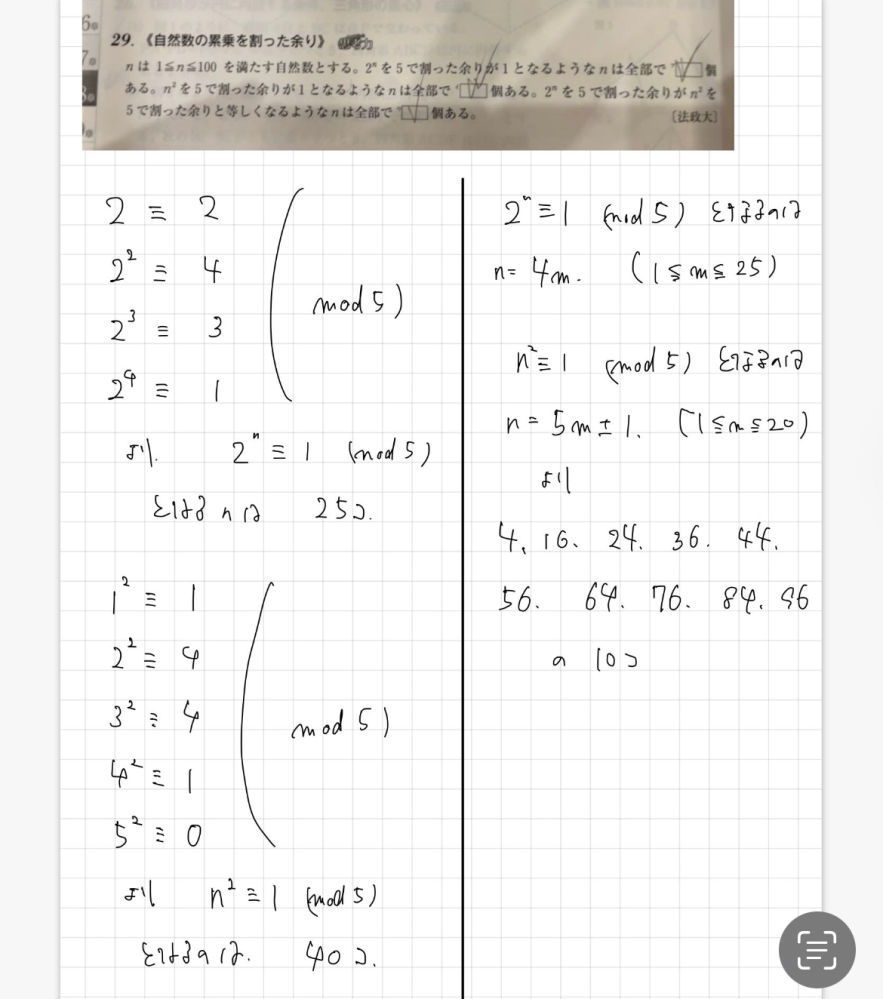 29.《自然数の累乗を割った余り》
nは1≦n≦100を満たす自然数とする。2ⁿを5で割った余りが1となるようなnは全部で□個
ある。n²を5で割った余りが1となるようなnは全部で□個ある。2ⁿを5で割った余りがn²を
5で割った余りと等しくなるようなnは全部で□個ある。
〔法政大〕
2 ≡ 2
2² ≡ 4
2³ ≡ 3
2⁴ ≡ 1
(mod 5)
より 2ⁿ ≡ 1 (mod 5)
となるnは 25コ.
1² ≡ 1
2² ≡ 4
3² ≡ 4
4² ≡ 1
5² ≡ 0
(mod 5)
より n² ≡ 1 (mod 5)
となるのは. 40コ.
2ⁿ ≡ 1 (mod 5) となるのは
n = 4m. (1 ≦ m ≦ 25)
n² ≡ 1 (mod 5) となるのは
n = 5m ± 1. (1 ≦ m ≦ 20)
より
4. 16. 24. 36. 44.
56. 64. 76. 84. 96
の 10コ